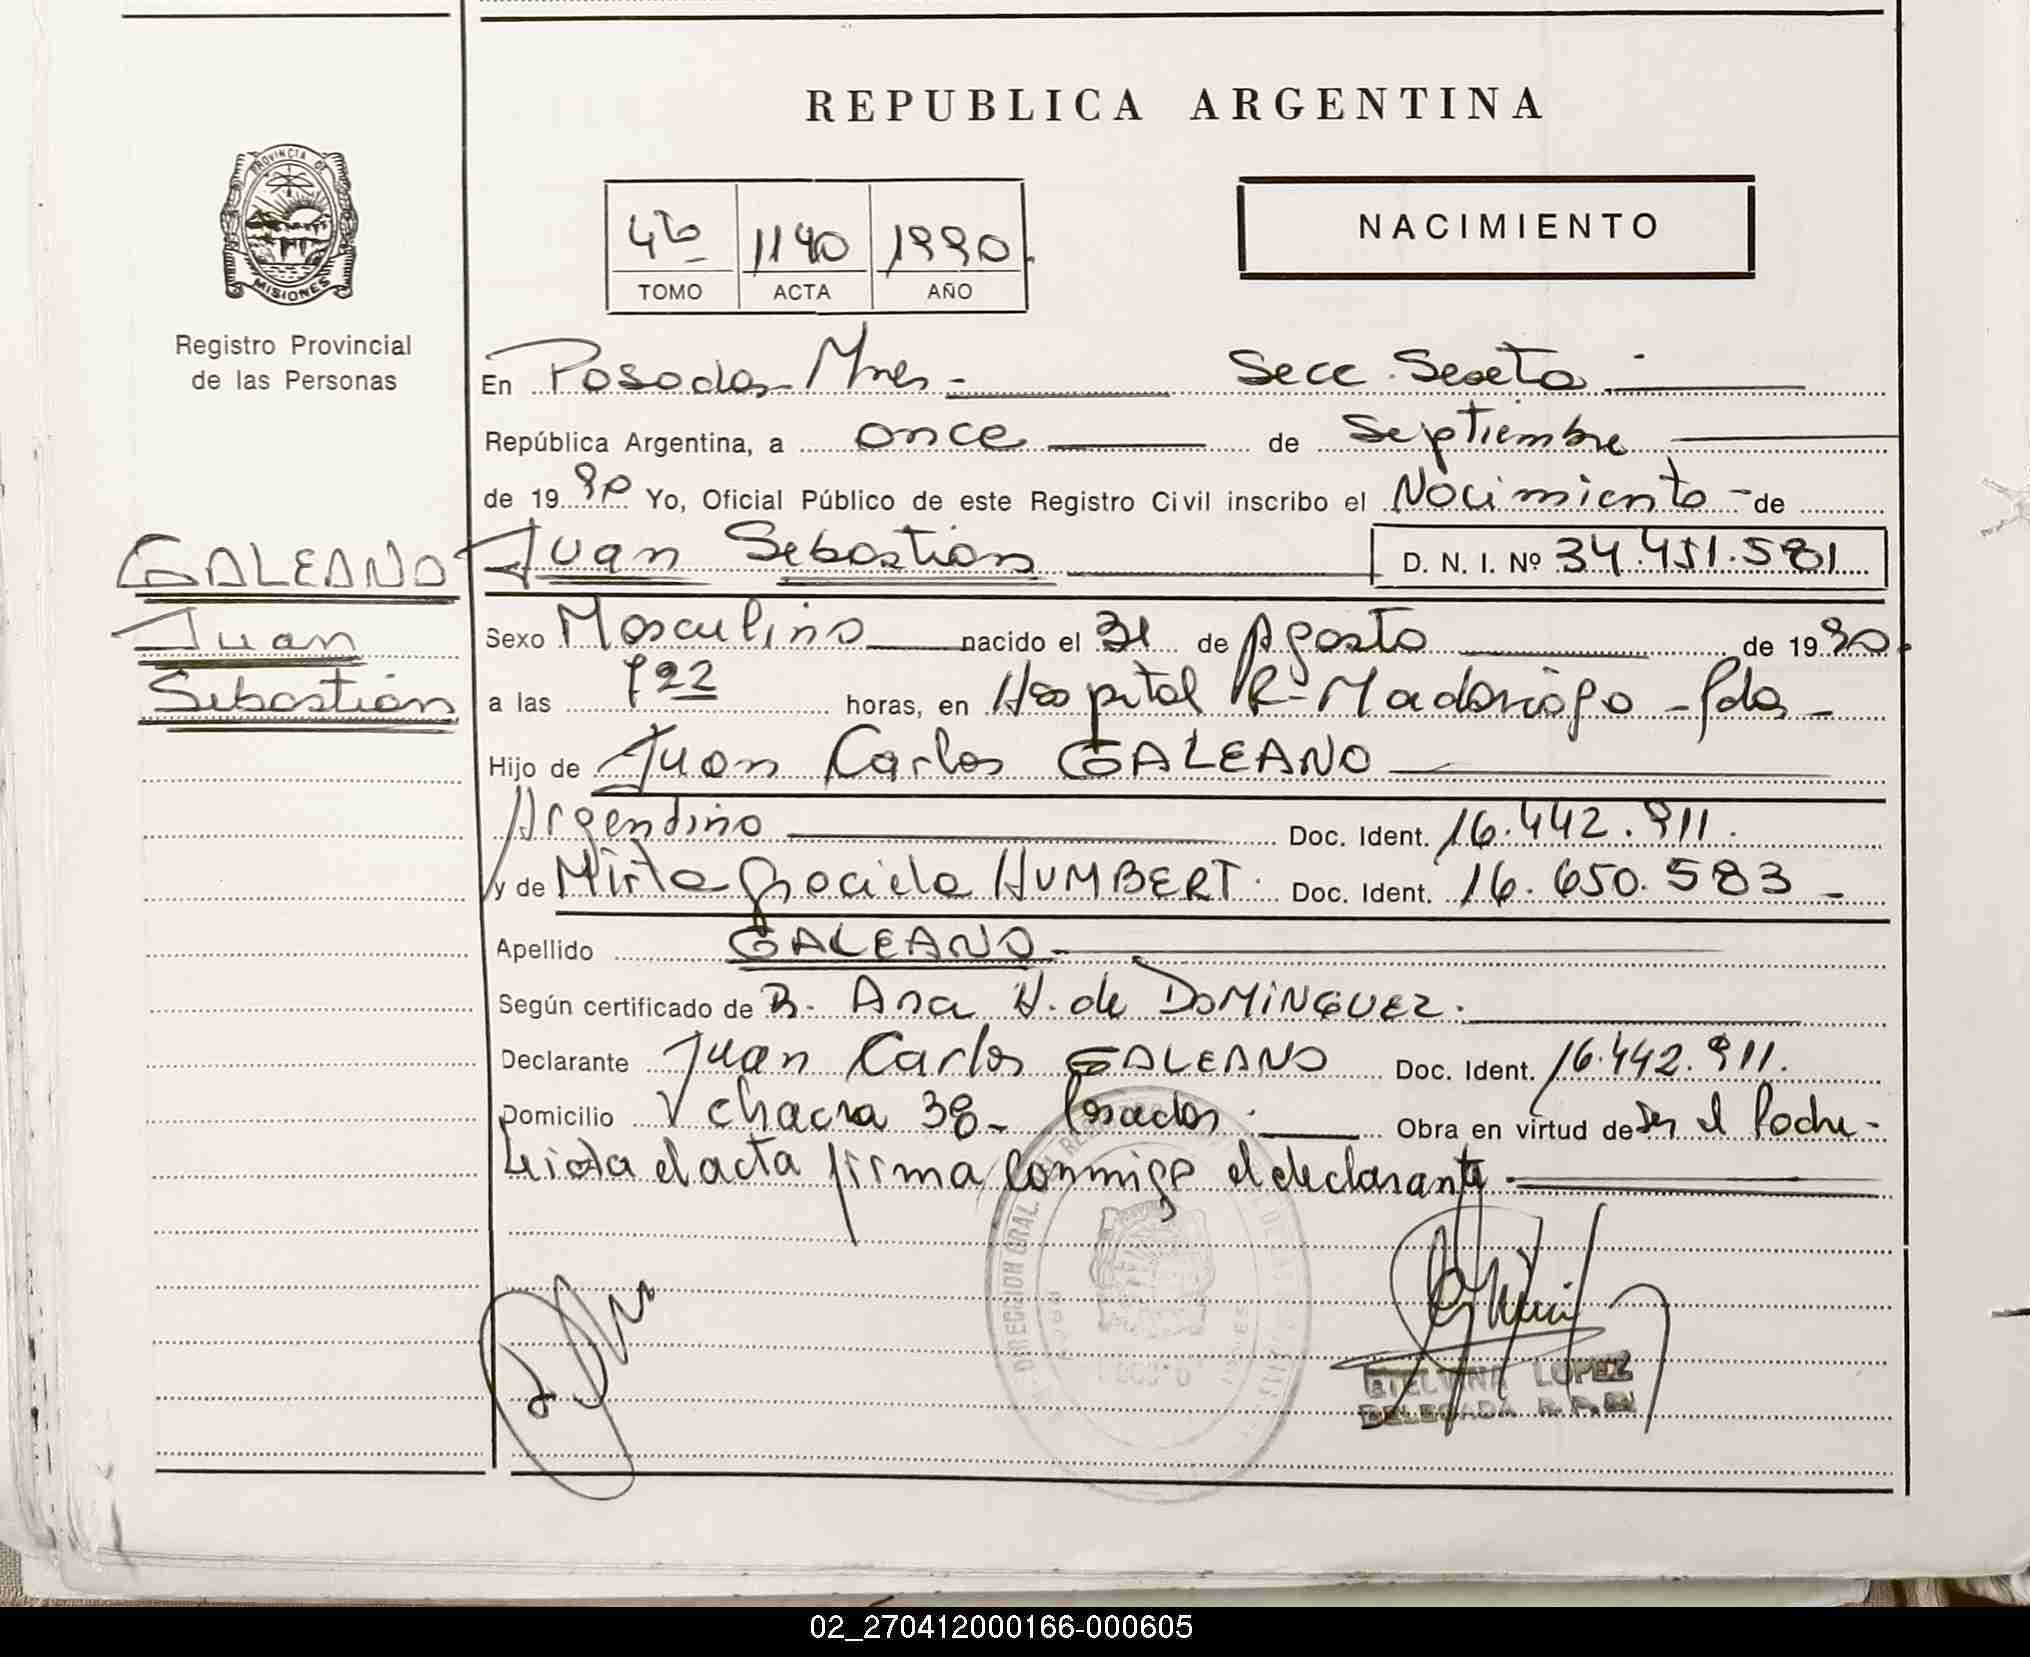 REPUBLICA ARGENTINA
PROVINCIA DE
MISIONES
Registro Provincial
de las Personas
4to 1140 1990
TOMO ACTA AÑO
NACIMIENTO
En Posadas Mnes- Secc. Sexta.
República Argentina, a once de Septiembre
de 1990 Yo, Oficial Público de este Registro Civil inscribo el Nacimiento - de
GALEANO
Juan
Sebastián
Juan Sebastián D. N. I. Nº 34.451.581
Sexo Masculino nacido el 31 de Agosto de 1990.
a las 722 horas, en Hospital R-Madariaga - Pdas -
Hijo de Juan Carlos GALEANO
Argentino Doc. Ident. 16.442.911.
y de Mirta Graciela HUMBERT. Doc. Ident. 16.650.583 -
Apellido GALEANO-
Según certificado de Ana H. de DOMINGUEZ.
Declarante Juan Carlos GALEANO Doc. Ident. 16.442.911.
Domicilio chacra 38- Posadas. Obra en virtud de ser el Padre-
Leida el acta firma conmigo el declarante.
DIRECCION GRAL.
ETELVINA LOPEZ
DELEGADA R.P.P.
02_270412000166-000605